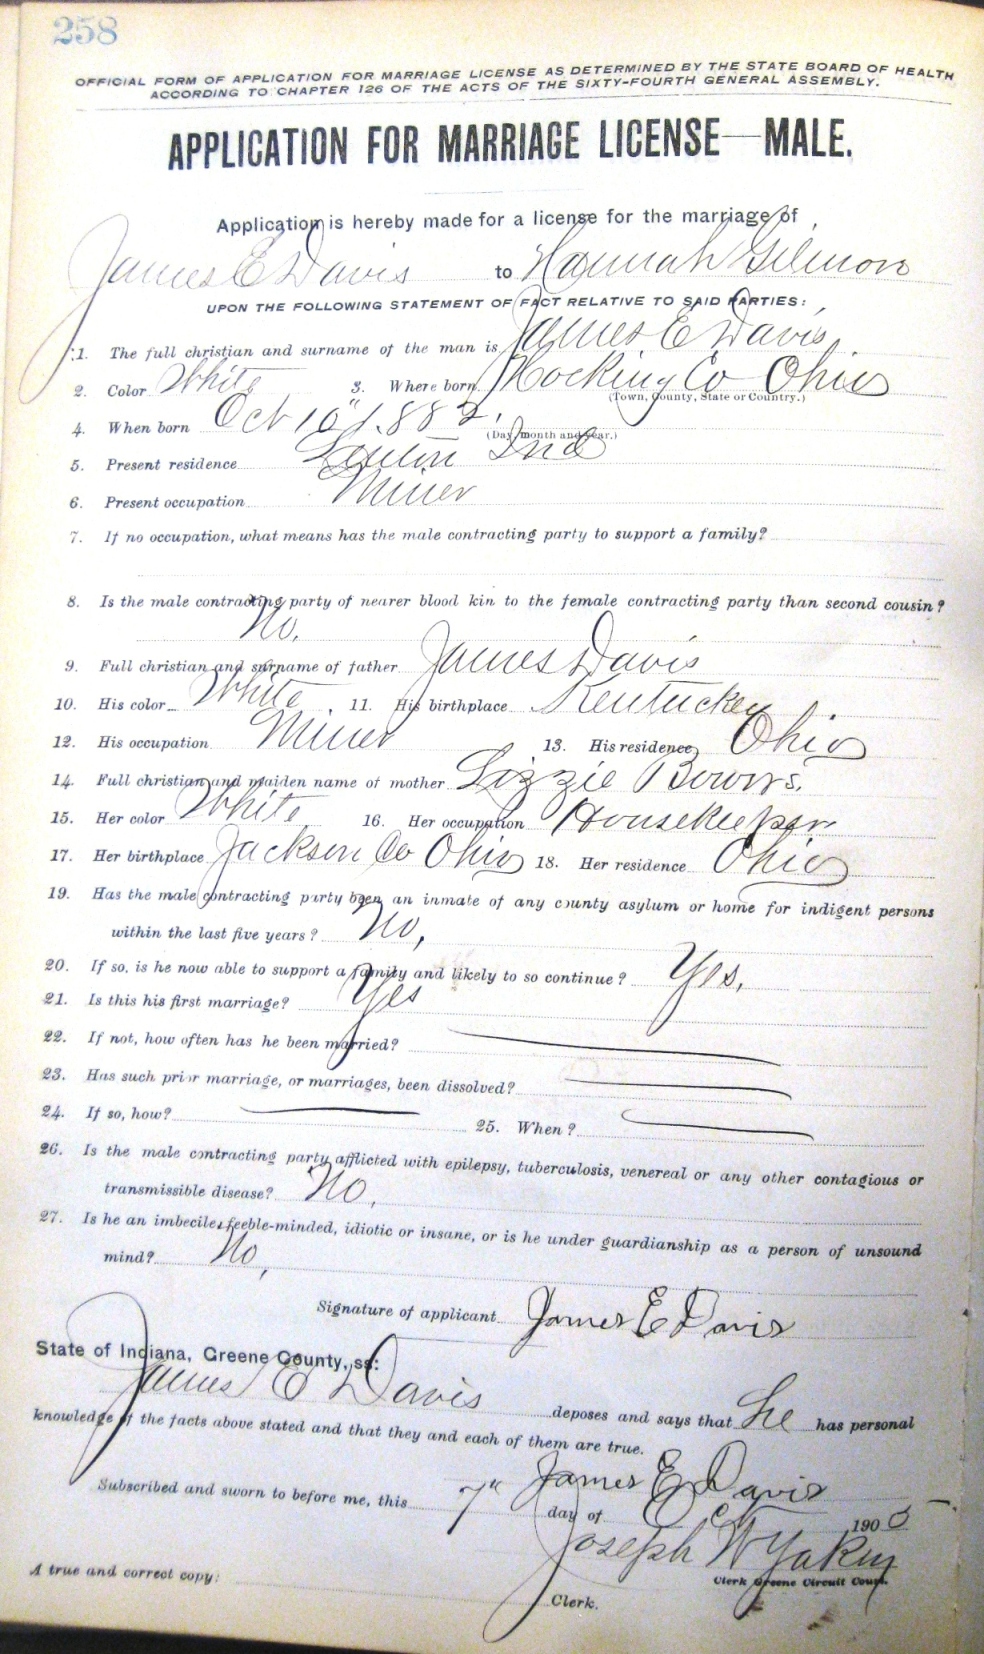 258
OFFICIAL FORM OF APPLICATION FOR MARRIAGE LICENSE AS DETERMINED BY THE STATE BOARD OF HEALTH
ACCORDING TO CHAPTER 126 OF THE ACTS OF THE SIXTY-FOURTH GENERAL ASSEMBLY.
APPLICATION FOR MARRIAGE LICENSE—MALE.
Application is hereby made for a license for the marriage of
James E Davis to Hannah Gilmore
UPON THE FOLLOWING STATEMENT OF FACT RELATIVE TO SAID PARTIES:
1. The full christian and surname of the man is James E Davis
2. Color White 3. Where born Hocking Co Ohio
(Town, County, State or Country.)
4. When born Oct 10" 1882.
(Day, month and year.)
5. Present residence Linton Ind
6. Present occupation Miner
7. If no occupation, what means has the male contracting party to support a family?
8. Is the male contracting party of nearer blood kin to the female contracting party than second cousin?
No.
9. Full christian and surname of father James Davis
10. His color White 11. His birthplace Kentuckey
12. His occupation Miner 13. His residence Ohio
14. Full christian and maiden name of mother Lizzie
15. Her color White 16. Her occupation Housekeeper
17. Her birthplace Jackson Co Ohio 18. Her residence Ohio
19. Has the male contracting party been an inmate of any county asylum or home for indigent persons
within the last five years? No,
20. If so, is he now able to support a family and likely to so continue? Yes,
21. Is this his first marriage? Yes
22. If not, how often has he been married?
23. Has such prior marriage, or marriages, been dissolved?
24. If so, how? 25. When?
26. Is the male contracting party afflicted with epilepsy, tuberculosis, venereal or any other contagious or
transmissible disease? No,
27. Is he an imbecile, feeble-minded, idiotic or insane, or is he under guardianship as a person of unsound
mind? No,
Signature of applicant James E Davis
State of Indiana, Greene County, ss:
James E Davis deposes and says that he has personal
knowledge of the facts above stated and that they and each of them are true.
James E Davis
Subscribed and sworn to before me, this 7" day of Oct 1905
Joseph W Yakey
Clerk Greene Circuit Court.
A true and correct copy:
Clerk.